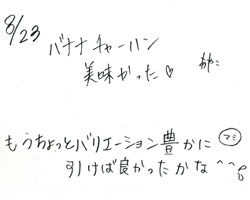 8/23
バナナチャーハン
美味かった♡
もうちょっとバリエーション豊かに
引けば良かったかな^^;
マミ